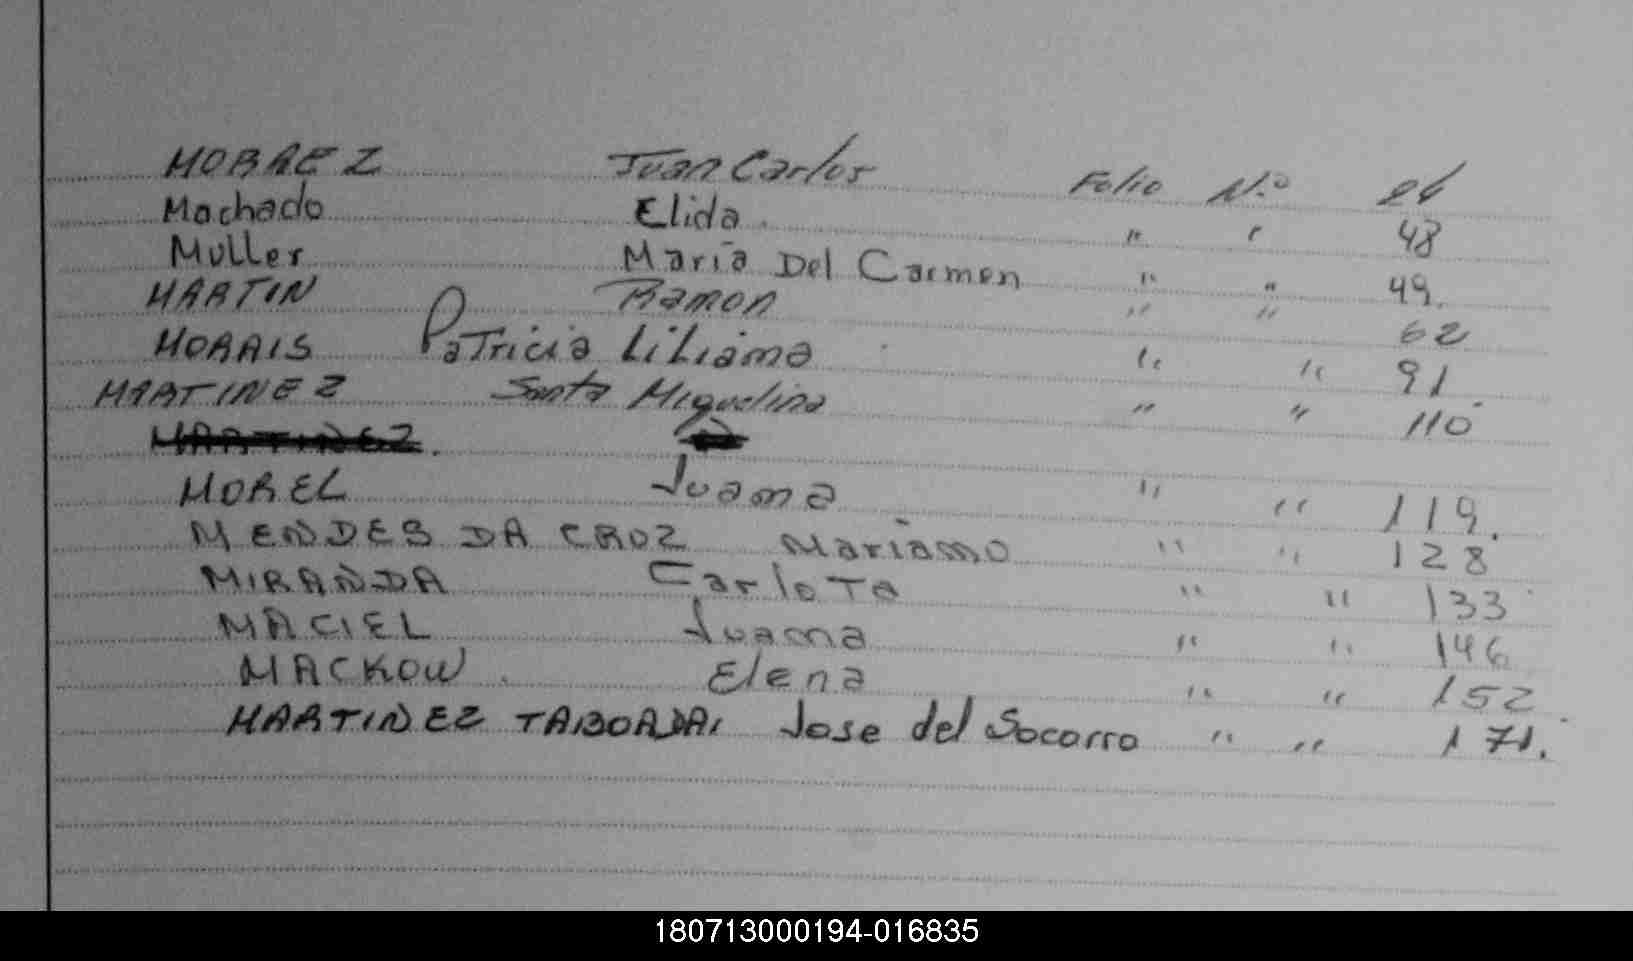 MOBREZ Juan Carlos Folio N.º 26
Machado Elida. " " 48
Muller Maria Del Carmen " " 49.
MARTIN Ramon " " 62
MORAIS Patricia Liliama " " 91
MARTINEZ Santa Miguelina " " 110
MARTINEZ.
MOREL Juama " " 119.
MENDES DA CROZ Mariamo " " 128
MIRANDA Carlota " " 133
MACIEL Juama " " 146
MACKOW. Elena " " 152
MARTINEZ TABORDA Jose del Socorro " " 171.
180713000194-016835